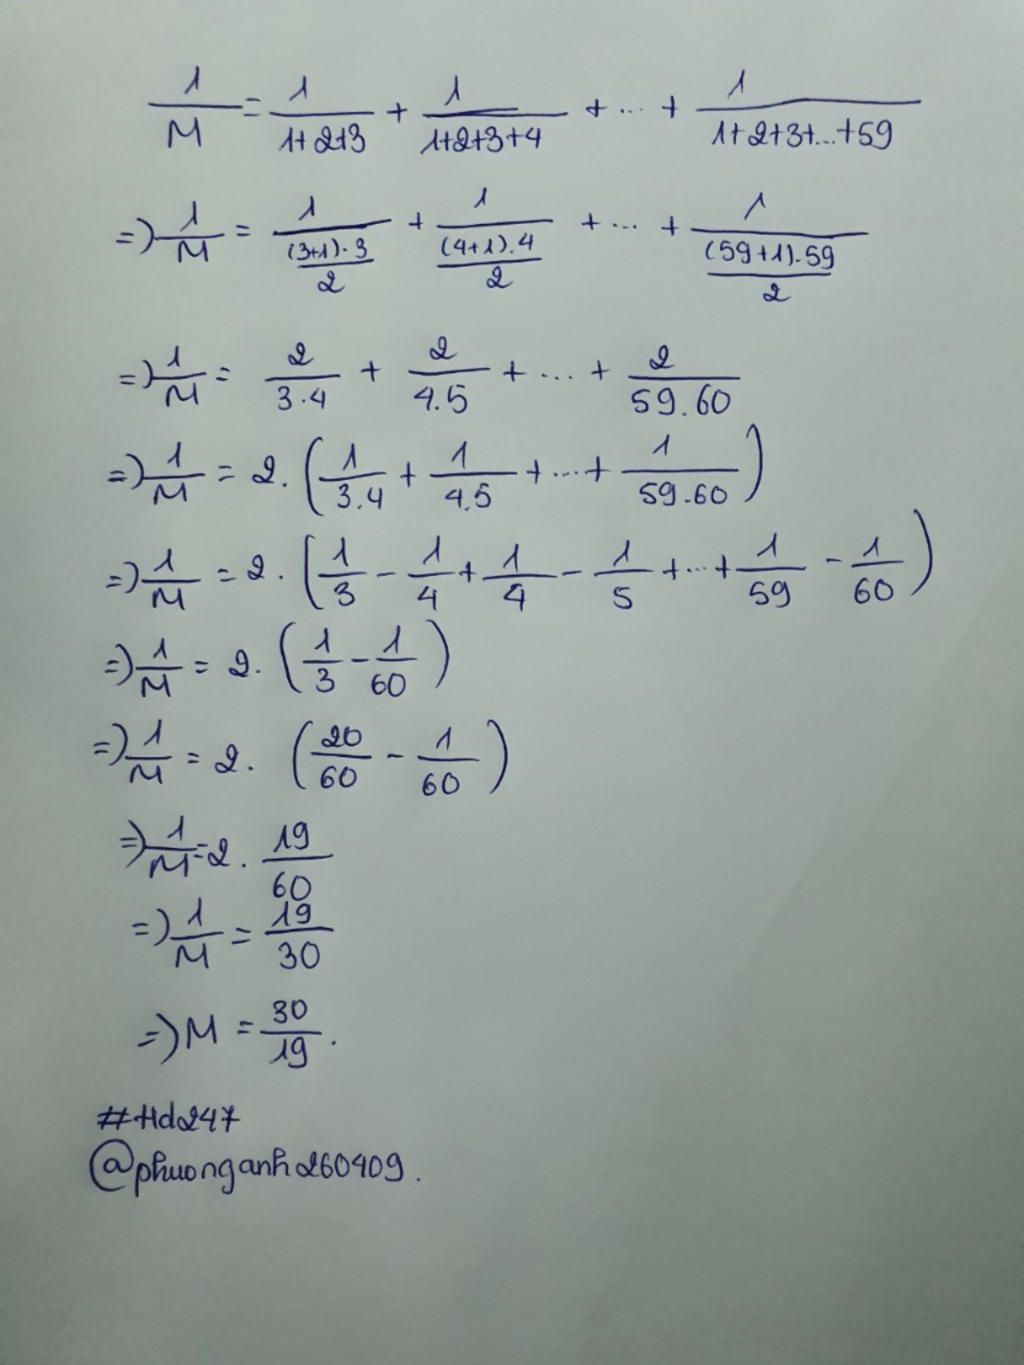 1/M = 1/(1+2+3) + 1/(1+2+3+4) + ... + 1/(1+2+3+...+59)
=> 1/M = 1/((3+1).3/2) + 1/((4+1).4/2) + ... + 1/((59+1).59/2)
=> 1/M = 2/3.4 + 2/4.5 + ... + 2/59.60
=> 1/M = 2.(1/3.4 + 1/4.5 + ... + 1/59.60)
=> 1/M = 2.(1/3 - 1/4 + 1/4 - 1/5 + ... + 1/59 - 1/60)
=> 1/M = 2.(1/3 - 1/60)
=> 1/M = 2.(20/60 - 1/60)
=> 1/M = 2.19/60
=> 1/M = 19/30
=> M = 30/19.
#Hd247
@phuonganh260409.